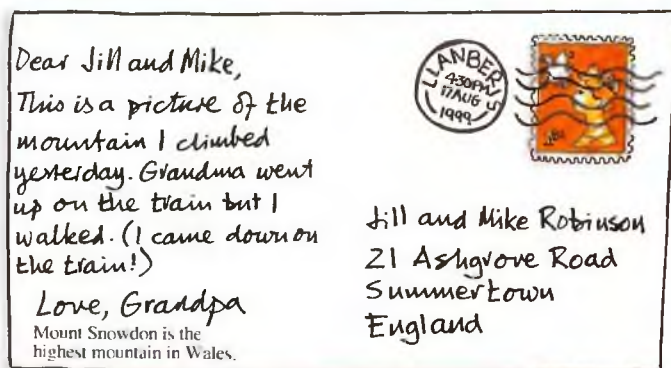 Dear Jill and Mike,
This is a picture of the
mountain I climbed
yesterday. Grandma went
up on the train but I
walked. (I came down on
the train!)
Love, Grandpa
Mount Snowdon is the
highest mountain in Wales.
LLANBERIS
4:30PM
17 AUG
1999
Jill and Mike Robinson
21 Ashgrove Road
Summertown
England